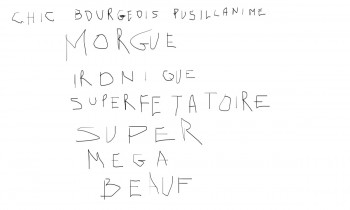 CHIC BOURGEOIS PUSILLANIME
MORGUE
IRONIQUE
SUPERFETATOIRE
SUPER
MEGA
BEAUF